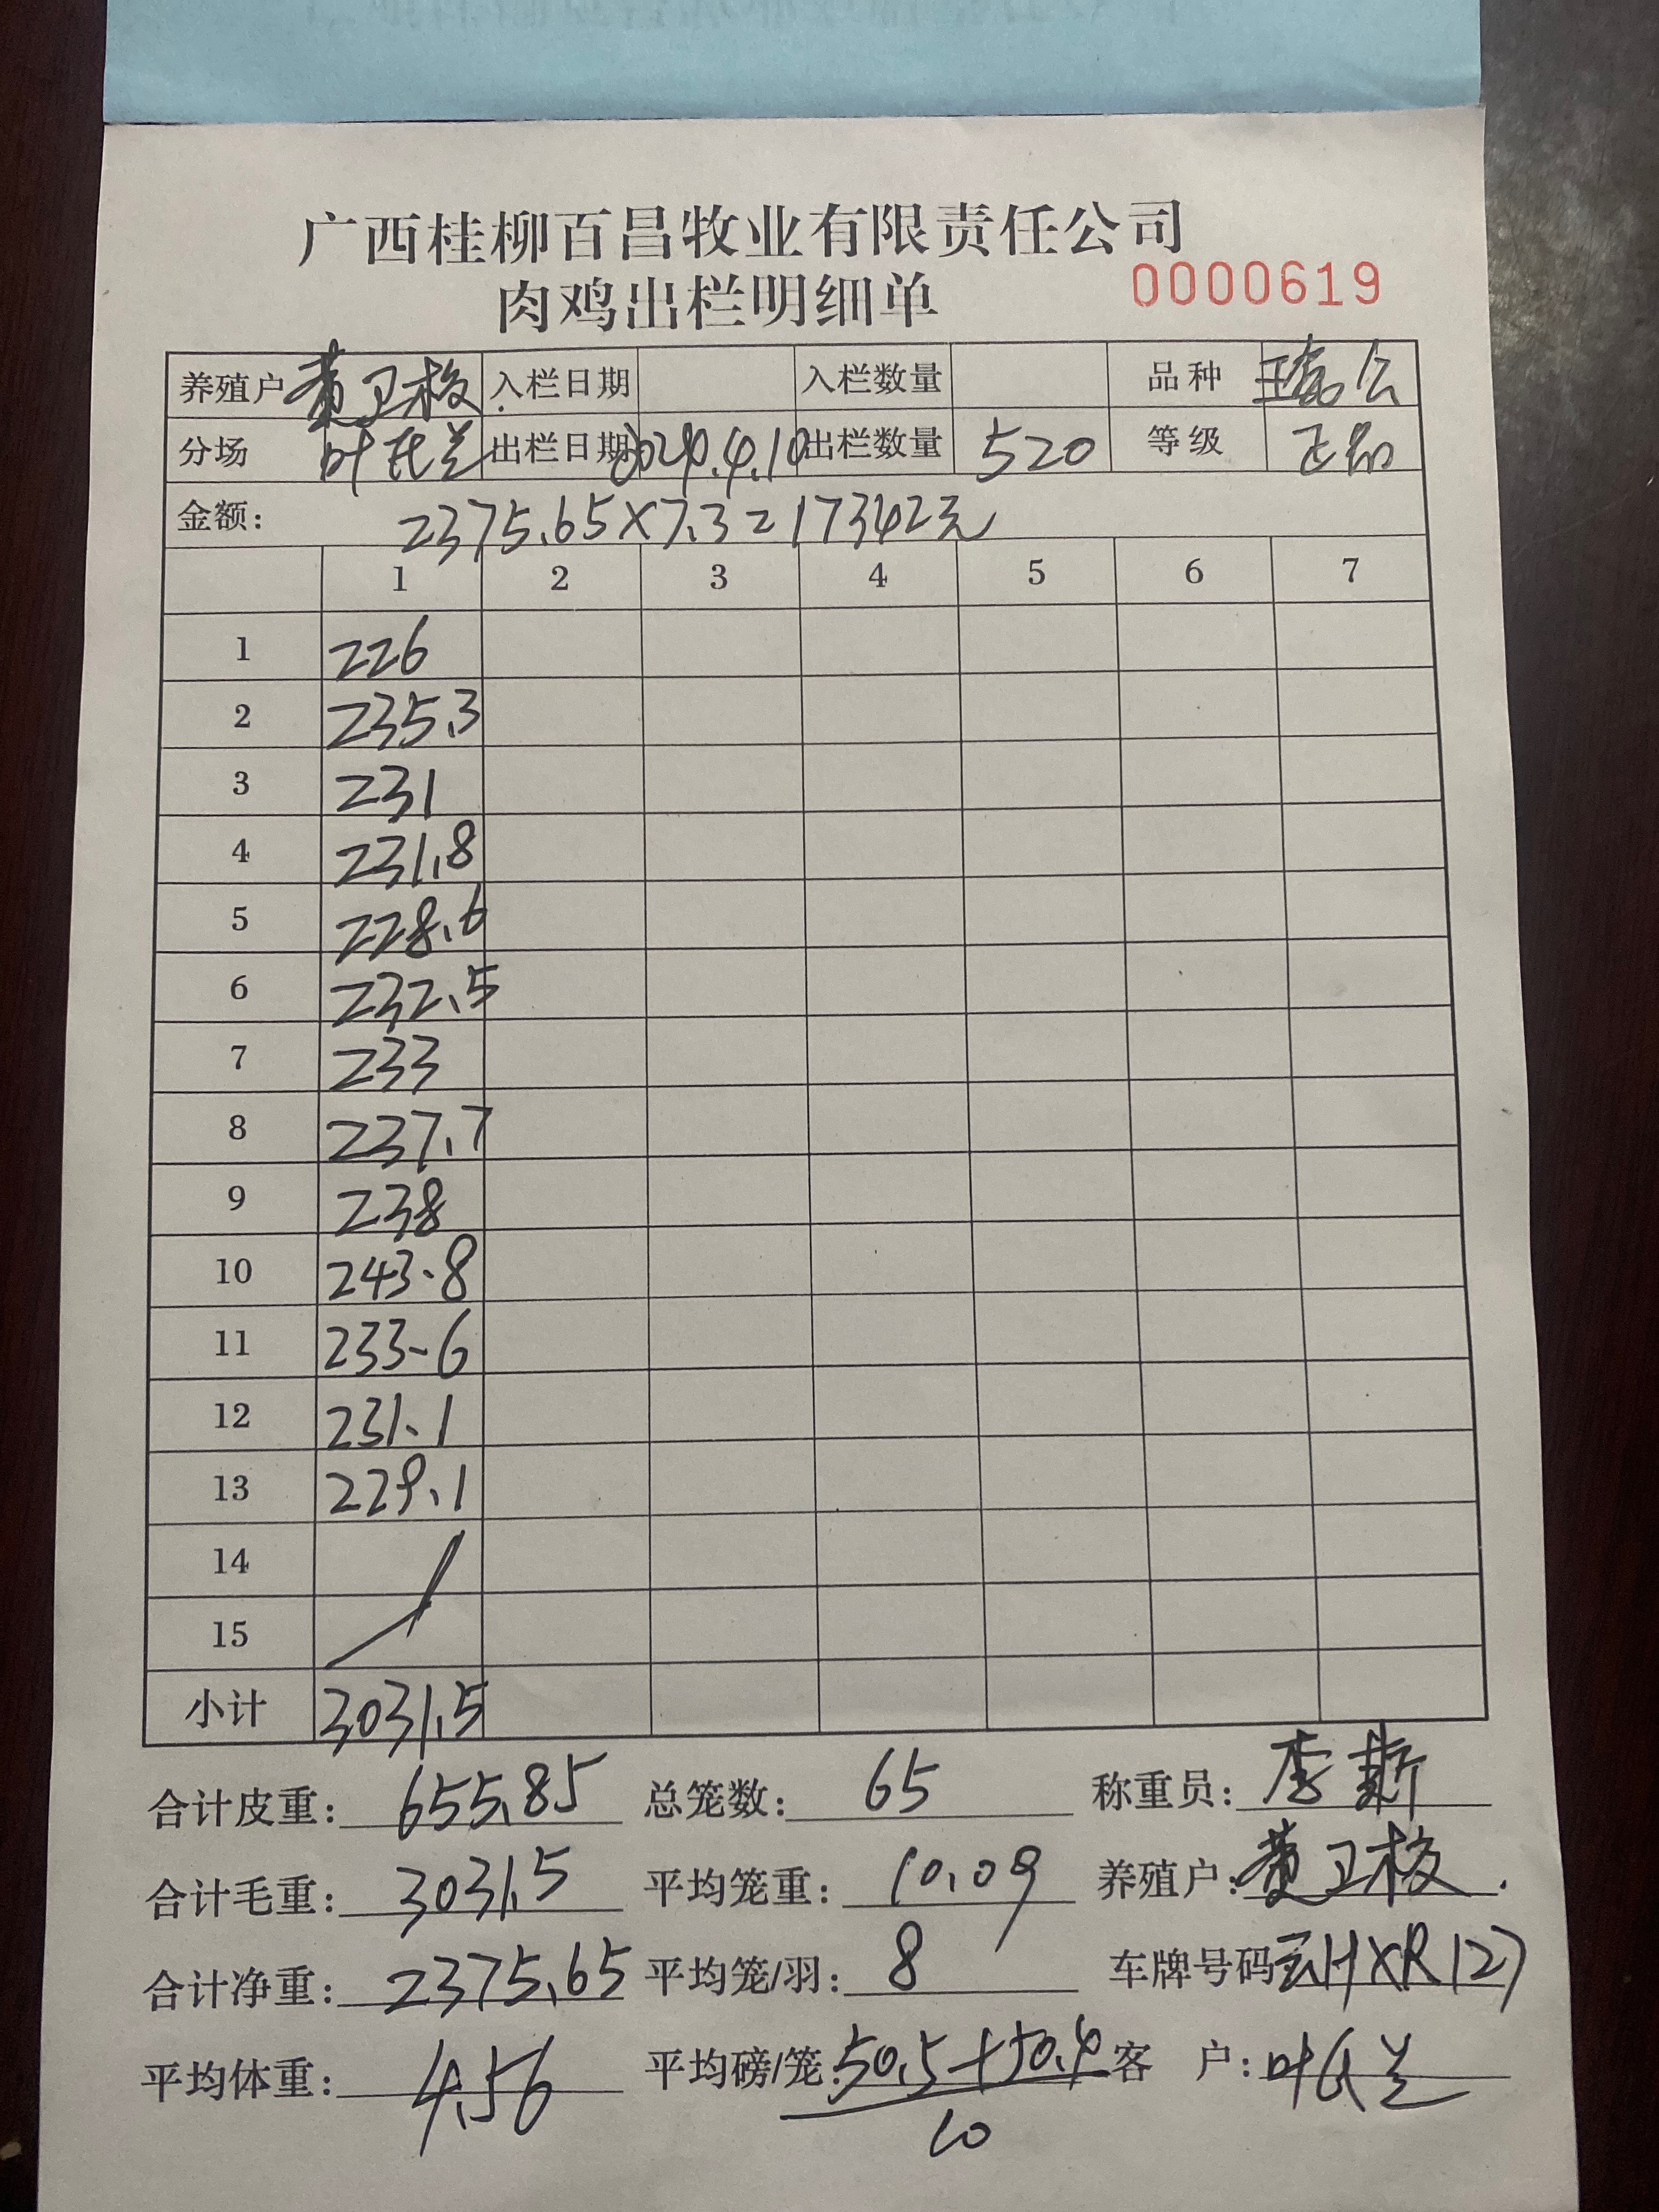 广西桂柳百昌牧业有限责任公司
肉鸡出栏明细单 0000619
养殖户 黄卫枚 入栏日期 入栏数量 品种
分场 叶氏兰 出栏日期 2024.4.10 出栏数量 520 等级 正品
金额: 2375.65×7.3=17342元
1 2 3 4 5 6 7
1 226
2 235.3
3 231
4 231.8
5 228.6
6 232.5
7 233
8 237.7
9 238
10 243.8
11 233.6
12 231.1
13 229.1
14
15
小计 3031.5
合计皮重: 655.85 总笼数: 65 称重员: 李
合计毛重: 3031.5 平均笼重: 10.09 养殖户: 黄卫枚
合计净重: 2375.65 平均笼/羽: 8 车牌号码 HXR127
平均体重: 4.56 平均磅/笼: 50.5+50.4 客 户: 叶氏兰
10